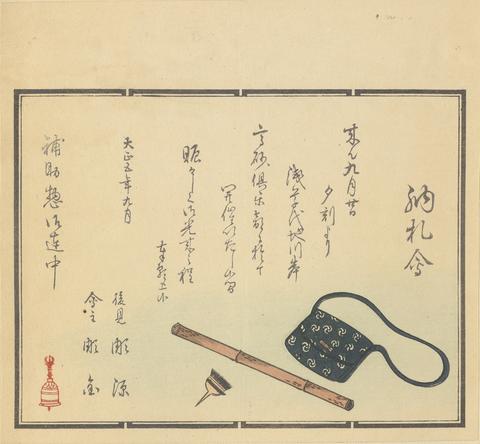 納札會
来ル九月廿日
夕刻より
浅草代地川岸
高砂倶楽部に於て
開催いたし候間
賑々しく御光来の程
大正五年九月
後見 彫源
會主 彫
補助惣御連中